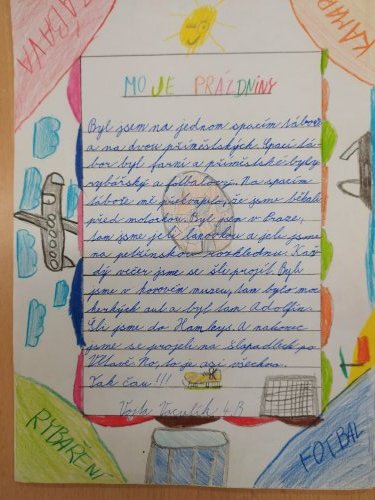 ZÁBAVA
KAMARÁDI
MOJE PRÁZDNINY
Byl jsem na jednom spacím táboře
a na dvou příměstských. Spací tá-
bor byl farní a příměstské byly
rybářský a fotbalový. Na spacím
táboře mě překvapilo, že jsme běhali
před motorkou. Byl jsem v Praze,
tam jsme jeli lanovkou a jeli jsme
na petřínskou rozhlednu. Kaž-
dý večer jsme se šli projít. Byli
jsme v kovovém muzeu, tam bylo moc
herkých aut a byl tam Adolfín.
Šli jsme do Hamleys. A nakonec
jsme se projeli na šlapadlech po
Vltavě. No, to je asi všechno.
Tak čau!!!
Vojta Vaculík 4.B
RYBAŘENÍ
FOTBAL